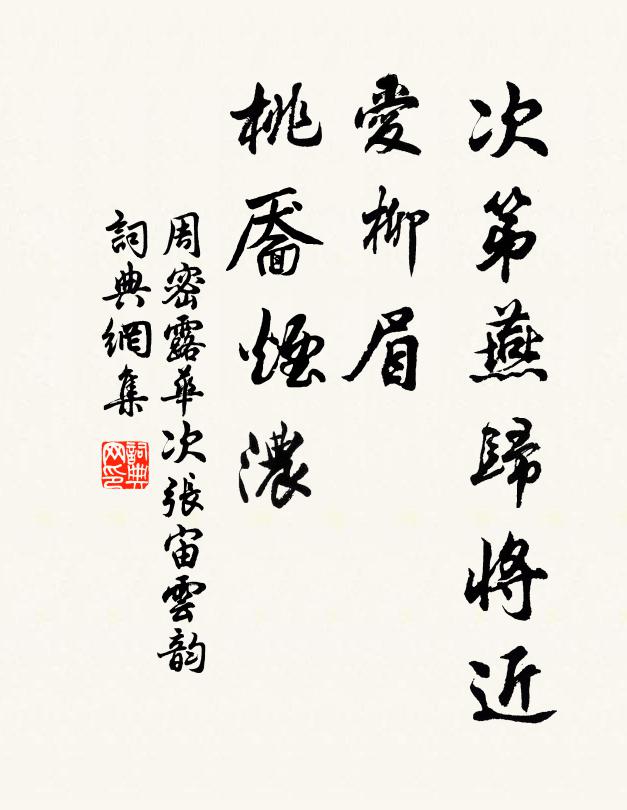 次第燕歸將近
愛柳眉
桃靨煙濃
周密露華次張宙雲韵
詞典網集
詞典网印